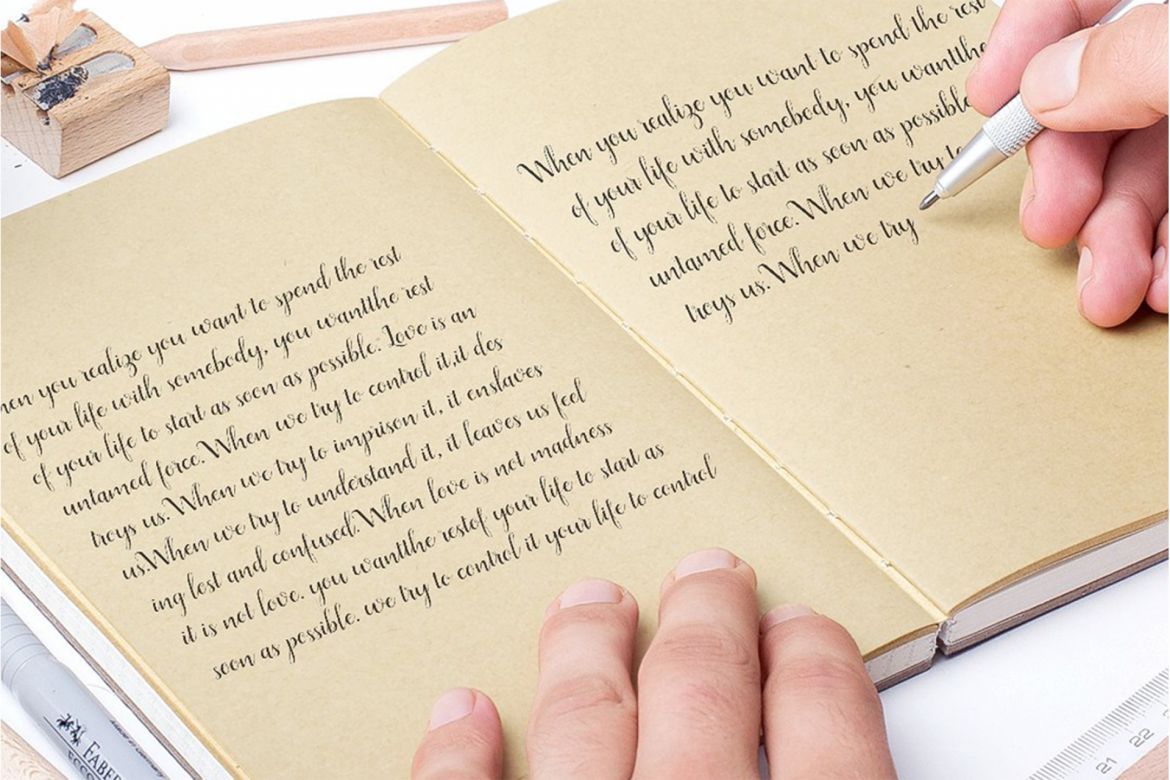 hen you realize you want to spend the rest
of your life with somebody, you wantthe rest
of your life to start as soon as possible. Love is an
untamed force.When we try to control it,it des
troys us.When we try to imprison it, it enslaves
us.When we try to understand it, it leaves us feel
ing lost and confused.When love is not madness
it is not love. you wantthe restof your life to start as
soon as possible. we try to control it your life to control
When you realize you want to spend the rest
of your life with somebody, you wantthe
of your life to start as soon as possible
untamed force.When we try to
troys us.When we try
FABER
21 22